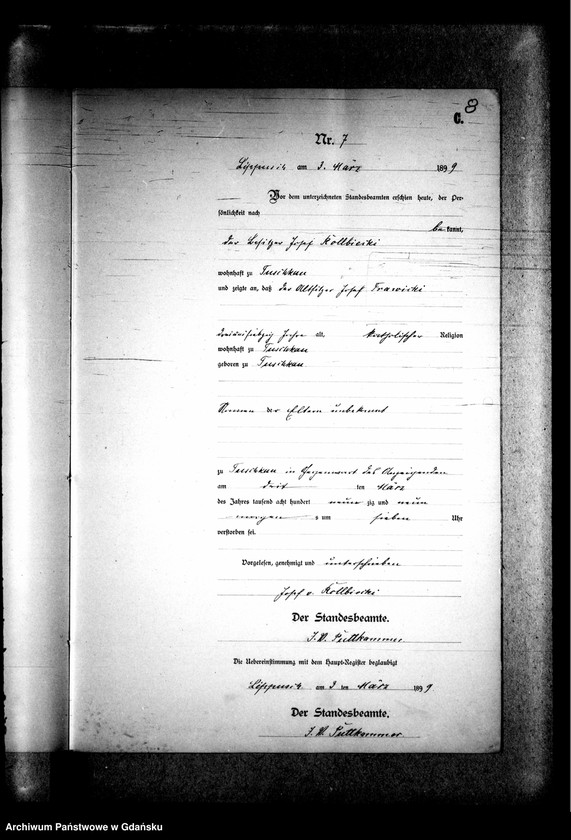 8
C.
Nr. 7
Lippusch am 3. März 1899
Vor dem unterzeichneten Standesbeamten erschien heute, der Per-
sönlichkeit nach
bekannt,
der Besitzer Josef Kollbiecki
wohnhaft zu Tuschkau
und zeigte an, daß der Altsitzer Josef
dreiundsiebzig Jahre alt, katholischer Religion
wohnhaft zu Tuschkau
geboren zu Tuschkau
Namen der Eltern unbekannt
zu Tuschkau in Gegenwart des Anzeigenden
am ten März
des Jahres tausend acht hundert neunzig und neun
morgens um sieben Uhr
verstorben sei.
Vorgelesen, genehmigt und unterschrieben
Josef v. Kollbiecki
Der Standesbeamte.
J. V. Puttkammer
Die Uebereinstimmung mit dem Haupt-Register beglaubigt
Lippusch am 3 ten März 1899
Der Standesbeamte.
J. V. Puttkammer
Archiwum Państwowe w Gdańsku